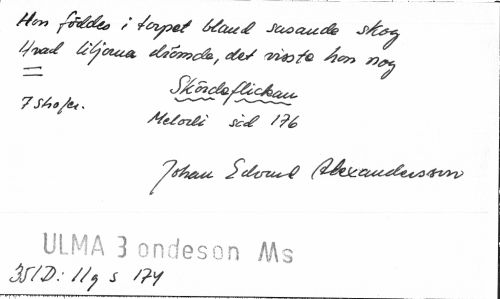 Hon föddes i torpet bland susande skog
Hvad liljorna drömde, det visste hon nog
Skördeflickan
7 strofer.
Melodi sid 176
Johan Edvard Alexandersson
ULMA Bondeson Ms
351D: 11g s 174